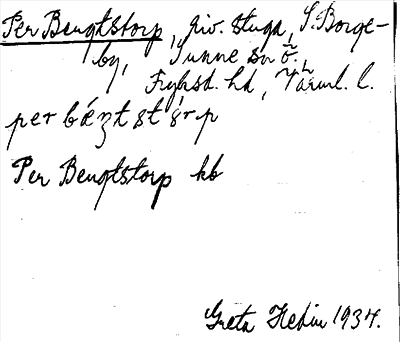 Per Bengtstorp, riv. stuga, S. Borge-
by, Sunne sn ö.,
Fryksd. hd, Värml. l.
per bæŋtstɷrp
Per Bengtstorp kb
Greta Hedin 1934.